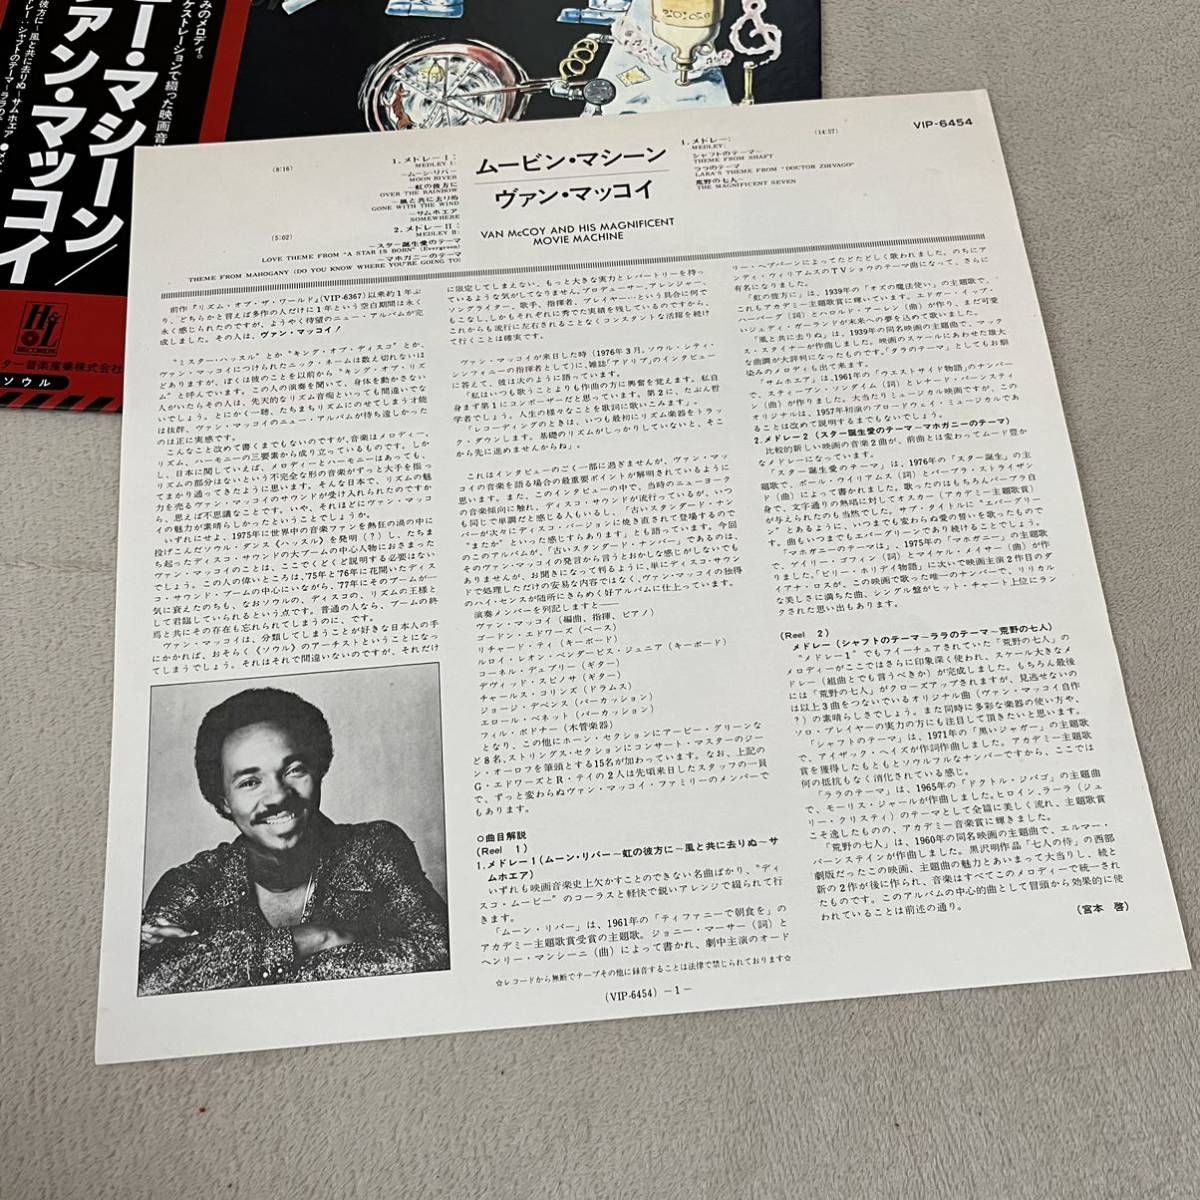 みのメロディ。
ケストレーションで綴った映画音
ー・マシーン/
ァン・マッコイ
H&L
RECORDS
ター音楽産業株式会社
ソウル
VIP-6454
ムービン・マシーン
ヴァン・マッコイ
VAN McCOY AND HIS MAGNIFICENT
MOVIE MACHINE
(8:16)
1. メドレーI:
MEDLEY I:
~ムーン・リバー
MOON RIVER
~虹の彼方に
OVER THE RAINBOW
~風と共に去りぬ
GONE WITH THE WIND
~サムホエア
SOMEWHERE
(5:02)
2. メドレーII:
MEDLEY II:
~スター誕生愛のテーマ
LOVE THEME FROM "A STAR IS BORN" (Evergreen)
~マホガニーのテーマ
THEME FROM MAHOGANY (DO YOU KNOW WHERE YOU'RE GOING TO)
(14:37)
1. メドレー:
MEDLEY:
シャフトのテーマ~
THEME FROM SHAFT
ララのテーマ
LARA'S THEME FROM "DOCTOR ZHIVAGO"
荒野の七人~
THE MAGNIFICENT SEVEN
前作『リズム・オブ・ザ・ワールド』(VIP-6367)以来約1年ぶ
り、どちらかと言えば多作の人だけに1年という空白期間は永
く感じられたのですが、ようやく待望のニュー・アルバムが完
成しました。その人は、ヴァン・マッコイ!
"ミスター・ハッスル"とか"キング・オブ・ディスコ"とか、
ヴァン・マッコイにつけられたニック・ネームは数え切れないほ
どありますが、ぼくは彼のことを以前から"キング・オブ・リズ
ム"と呼んでいます。この人の演奏を聞いて、身体を動かさない
人がいたらその人は、先天的なリズム音痴といっても間違いでな
いでしょう。とにかく一聴、たちまちリズムにのせてしまう才能
は抜群、ヴァン・マッコイのニュー・アルバムが待ち遠しかった
のは正に実感です。
こんなこと改めて書くまでもないのですが、音楽はメロディー、
リズム、ハーモニーの三要素から成り立っているものです。しか
し、日本に関していえば、メロディーとハーモニーはあっても、
リズムの部分はないという不完全な形の音楽がずっと大手を振っ
てまかり通ってきたように思います。そんな日本で、リズムの魅
力を売るヴァン・マッコイのサウンドが受け入れられたのですか
ら、思えば不思議なことです。いや、それほどにヴァン・マッコ
イの魅力が素晴しかったということでしょうか。
いずれにせよ、1975年に世界中の音楽ファンを熱狂の渦の中に
投げこんだソウル・ダンス《ハッスル》を発明(?)し、たちま
ち起ったディスコ・サウンドの大ブームの中心人物におさまった
ヴァン・マッコイのことは、ここでくどくど説明する必要はない
でしょう。この人の偉いところは、'75年と'76年に花開いたディス
コ・サウンド・ブームの中心にいながら、'77年にそのブームが一
気に衰えたのちも、なおソウルの、ディスコの、リズムの王様と
して君臨していられるという点です。普通の人なら、ブームの終
焉と共にその存在も忘れられてしまうのに、です。
ヴァン・マッコイは、分類してしまうことが好きな日本人の手
にかかれば、おそらく《ソウル》のアーチストということになっ
てしまうでしょう。それはそれで間違いないのですが、それだけ
に限定してしまえない、もっと大きな実力とレパートリーを持っ
ているような気がしてなりません。プロデューサー、アレンジャー、
ソングライター、歌手、指揮者、プレイヤー……という具合に何で
もこなし、しかもそれぞれに秀でた実績を残しているのですから、
これからも流行に左右されることなくコンスタントな活躍を続け
て行くことは確実です。
ヴァン・マッコイが来日した時(1976年3月。ソウル・シティ・
シンフィニーの指揮者として)に、雑誌「アドリブ」のインタビュー
に答えて、彼は次のように語っています。
「私はいつも歌うことよりも作曲の方に興奮を覚えます。私自
身まず第1にコンポーザーだと思っています。第2に、たぶん哲
学者でしょう。人生の様々なことを歌詞に歌いこみます」。
「レコーディングのときは、いつも最初にリズム楽器をトラッ
ク・ダウンします。基礎のリズムがしっかりしていないと、そこ
から先に進めませんからね」。
これはインタビューのごく一部に過ぎませんが、ヴァン・マッ
コイの音楽を語る場合の最重要ポイントが解明されているように
思います。また、このインタビューの中で、当時のニューヨーク
の音楽傾向に触れ、ディスコ・サウンドが流行っているが、いつ
も同じで単調だと感じる人もいるし、「古いスタンダード・ナン
バーが次々にディスコ・バージョンに焼き直されて登場するので
"またか"といった感じすらあります」とも語っています。今回
のこのアルバムが、「古いスタンダード・ナンバー」であるのは、
そのヴァン・マッコイの発言から言うとおかしな感じがしないでも
ありませんが、お聞きになって判るように、単にディスコ・サウン
ドで処理しただけの安易な内容ではなく、ヴァン・マッコイの独得
のハイ・センスが随所にきらめく好アルバムに仕上っています。
演奏メンバーを列記しますと——
ヴァン・マッコイ(編曲、指揮、ピアノ)
ゴードン・エドワーズ(ベース)
リチャード・ティ(キーボード)
ルロイ・レオン・ペンダービス・ジュニア(キーボード)
コーネル・デュプリー(ギター)
デヴィッド・スピノサ(ギター)
チャールス・コリンズ(ドラムス)
ジョージ・デベンス(パーカッション)
エロール・ベネット(パーカッション)
フィル・ボドナー(木管楽器)
となり、この他にホーン・セクションにアービー・グリーンな
ど8名、ストリングス・セクションにコンサート・マスターのジー
ン・オーロフを筆頭とする15名が加わっています。なお、上記の
G・エドワーズとR・ティの2人は先頃来日したスタッフの一員
で、ずっと変わらぬヴァン・マッコイ・ファミリーのメンバーで
もあります。
○曲目解説
(Reel 1)
1. メドレー1(ムーン・リバー~虹の彼方に~風と共に去りぬ~サ
ムホエア)
いずれも映画音楽史上欠かすことのできない名曲ばかり、"ディ
スコ・ムービー"のコーラスと軽快で鋭いアレンジで綴られて行
きます。
「ムーン・リバー」は、1961年の「ティファニーで朝食を」の
アカデミー主題歌賞受賞の主題歌。ジョニー・マーサー(詞)と
ヘンリー・マンシーニ(曲)によって書かれ、劇中主演のオード
リー・ヘプバーンによってたどたどしく歌われました。のちにア
ンディ・ウィリアムスのTVショウのテーマ曲になって、さらに
有名になりました。
「虹の彼方に」は、1939年の「オズの魔法使い」の主題歌で、
これもアカデミー主題歌賞に輝いています。エドガー・イップ・
ハーバーグ(詞)とハロルド・アーレン(曲)が作り、まだ可愛
いジュディ・ガーランドが未来への夢を込めて歌いました。
「風と共に去りぬ」は、1939年の同名映画の主題曲で、マック
ス・スタイナーが作曲しました。映画のスケールにあわせた雄大
な曲調が大評判になったものです。「タラのテーマ」としてもお馴
染みのメロディも出て来ます。
「サムホエア」は、1961年の「ウエストサイド物語」のナンバー
で、スティーブン・ソンダイム(詞)とレナード・バーンスティ
ン(曲)が作りました。大当たりミュージカル映画ですが、
オリジナルは、1957年初演のブロードウェイ・ミュージカルであ
ることは改めて説明するまでもないでしょう。
2. メドレー2(スター誕生愛のテーマ~マホガニーのテーマ)
比較的新しい映画の音楽2曲が、前曲とは変わってムード豊か
なメドレーになっています。
「スター誕生愛のテーマ」は、1976年の「スター誕生」の主
題歌で、ポール・ウイリアムス(詞)とバーブラ・ストライザン
ド(曲)によって書かれました。歌ったのはもちろんバーブラ自
身で、文字通りの熱唱に対してオスカー(アカデミー主題歌賞)
が与えられたのも当然でした。サブ・タイトルに"エバーグリー
ン"とあるように、いつまでも変わらぬ愛の誓いを歌ったもので
す。曲もいつまでもエバーグリーンであり続けることでしょう。
「マホガニーのテーマは」、1975年の「マホガニー」の主題歌
で、ゲイリー・ゴフィン(詞)とマイケル・メイサー(曲)が作
りました。「ビリー・ホリデイ物語」に次いで映画主演2作目のダ
イアナ・ロスが、この映画で歌った唯一のナンバーで、リリカル
な美しさに満ちた曲、シングル盤がヒット・チャート上位にラン
クされた思い出もあります。
(Reel 2)
メドレー(シャフトのテーマ~ララのテーマ~荒野の七人)
"メドレー1"でもフイーチュアされていた「荒野の七人」の
メロディーがここではさらに印象深く使われ、スケール大きなメ
ドレー(組曲とでも言うべきか)が完成しました。もちろん最後
には「荒野の七人」がクローズアップされますが、見逃せないの
は以上3曲をつないでいるオリジナル曲(ヴァン・マッコイ自作
?)の素晴らしさでしょう。また同時に多彩な楽器の使い方や、
ソロ・プレイヤーの実力の方にも注目して頂きたいと思います。
「シャフトのテーマ」は、1971年の「黒いジャガー」の主題歌
で、アイザック・ヘイズが作詞作曲しました。アカデミー主題歌
賞を獲得したもともとソウルフルなナンバーですから、ここでは
何の抵抗もなく消化されている感じ。
「ララのテーマ」は、1965年の「ドクトル・ジバゴ」の主題曲
で、モーリス・ジャールが作曲しました。ヒロイン、ラーラ(ジュ
リー・クリスティ)のテーマとして全篇に美しく流れ、主題歌賞
こそ逸したものの、アカデミー音楽賞に輝きました。
「荒野の七人」は、1960年の同名映画の主題曲で、エルマー・
バーンステインが作曲しました。黒沢明作品「七人の侍」の西部
劇版だったこの映画、主題曲の魅力とあいまって大当りし、続と
新の2作が後に作られ、音楽はすべてこのメロディーで統一され
たものです。このアルバムの中心的曲として冒頭から効果的に使
われていることは前述の通り。
(宮本 啓)
☆レコードから無断でテープその他に録音することは法律で禁じられております☆
(VIP-6454) -1-